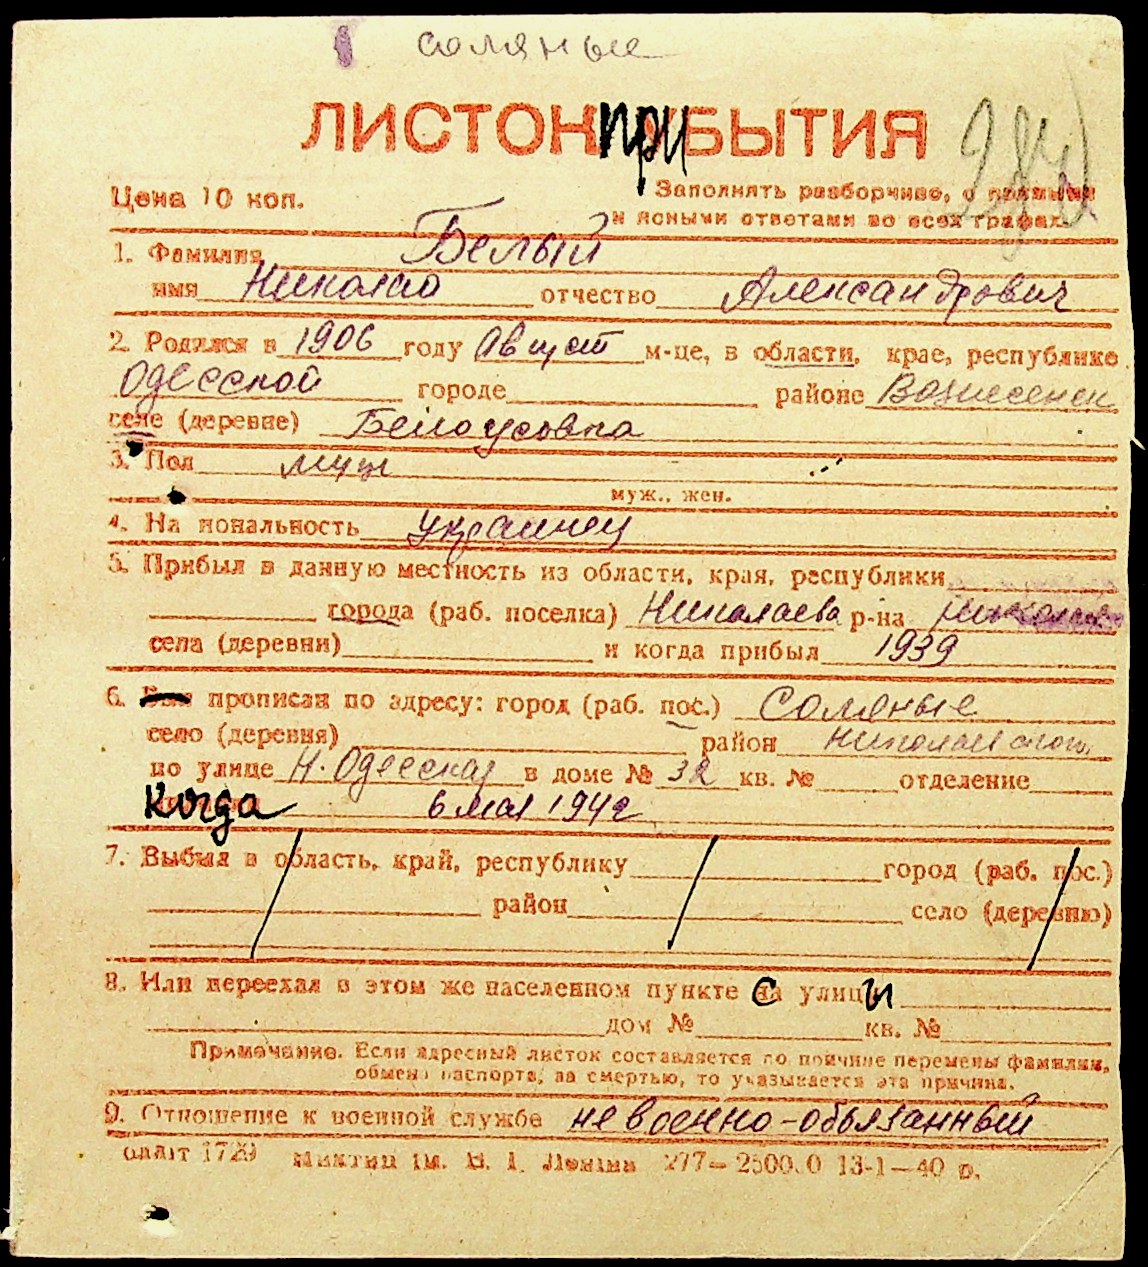 соляные
ЛИСТОК приБЫТИЯ
Цена 10 коп.
Заполнять разборчиво, с полными
и ясными ответами во всех графах
1. Фамилия Белый
имя Николай отчество Александрович
2. Родился в 1906 году Август м-це, в области, крае, республике
Одесской городе районе Вознесенск
селе (деревне) Белоусовка
3. Пол муж
муж., жен.
4. Национальность украинец
5. Прибыл в данную местность из области, края, республики
города (раб. поселка) Николаева р-на
села (деревни) и когда прибыл 1939
6. прописан по адресу: город (раб. пос.) Соляные
село (деревня) район
по улице Н. Одесская в доме № 32 кв. № отделение
когда 6 мая 1942
7. Выбыл в область, край, республику город (раб. пос.)
район село (деревню)
8. Или переехал в этом же населенном пункте с улицы
дом № кв. №
Примечание. Если адресный листок составляется по причине перемены фамилии,
обмена паспорта, за смертью, то указывается эта причина.
9. Отношение к военной службе не военно-обязанный
1729 им. В. И. Ленина 277— 13-1—40 р.